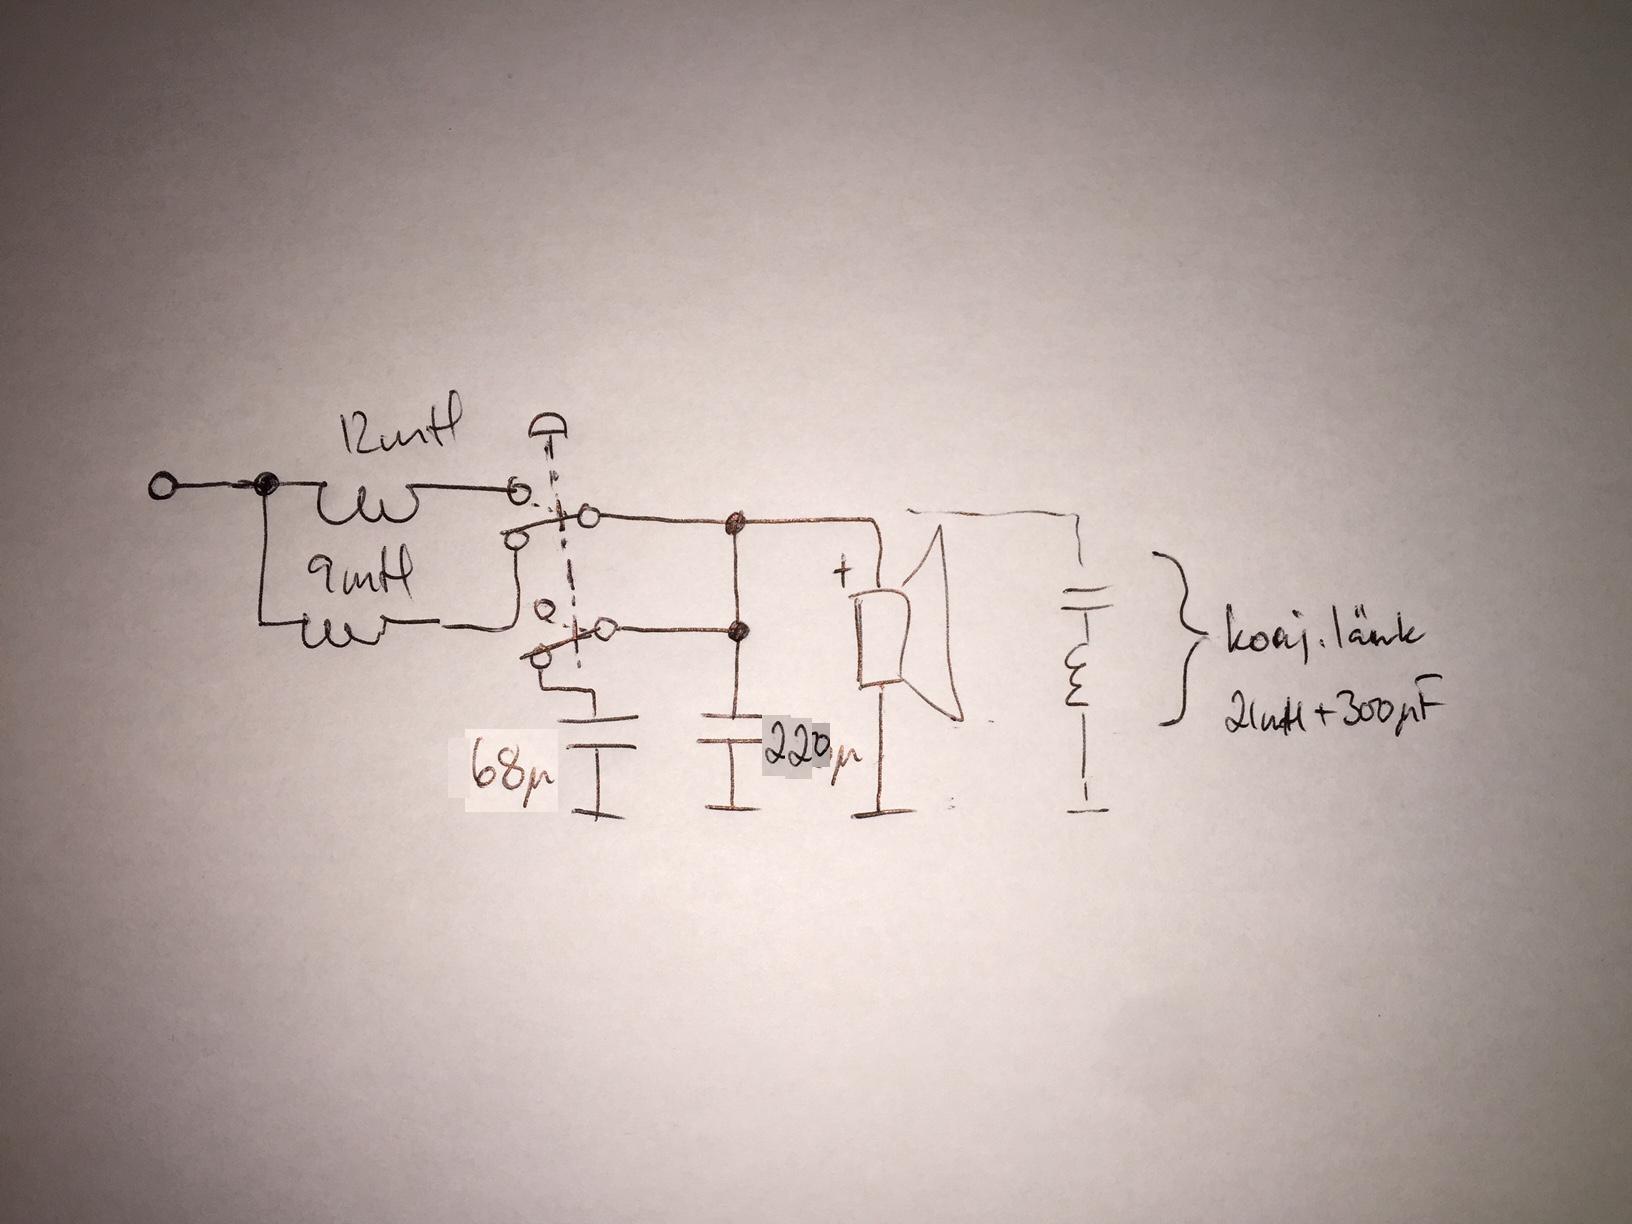 12mH
9mH
+
68µ
220µ
konj. länk
21mH + 300µF